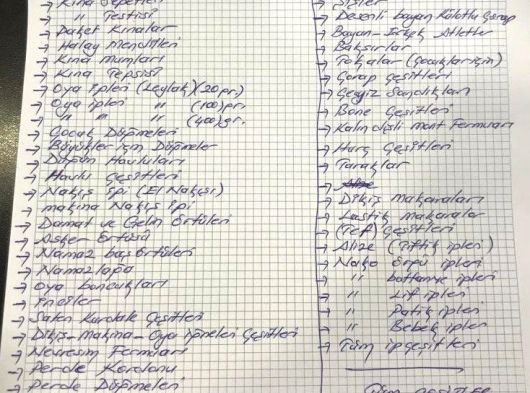 → Kına Sepetleri
→ " Testisi
→ Paket Kınalar
→ Halay Mendilleri
→ Kına mumları
→ Kına Tepsisi
→ Oya ipleri (Leylak)(20 gr.)
→ Oya ipleri " (100)gr.
→ " " " (400)gr.
→ Çocuk Düğmeleri
→ Büyükler için Düğmeler
→ Düğün Havluları
→ Havlu Çeşitleri
→ Nakış ipi (El Nakışı)
→ makina Nakış ipi
→ Damat ve Gelin örtüleri
→ Asker Örtüsü
→ Namaz baş örtüleri
→ Namazlağa
→ Oya boncukları
→ inciler
→ Saten Kurdale Çeşitleri
→ Dikiş-Makina-Oya iğneleri Çeşitleri
→ Nevresim Fermuarı
→ Perde Kordonu
→ Perde Düğmeleri
→ Şişler
→ Desenli bayan Külotlu Çorap
→ Bayan-Erkek Atletler
→ Baksırlar
→ Tokalar (Çocuklar için)
→ Çorap Çeşitleri
→ Çeyiz Sandıkları
→ Bone Çeşitleri
→ Kalın dişli mont Fermuarı
→ Harç Çeşitleri
→ Taraklar
→ Alize
→ Dikiş makaraları
→ Lastik makaralar
→ (Tef) Çeşitleri
→ Alize (Tiftik ipleri)
→ Nako örgü ipleri
→ " battaniye ipleri
→ " Lif ipleri
→ " Patik ipleri
→ " Bebek ipleri
→ Tüm ip çeşitleri